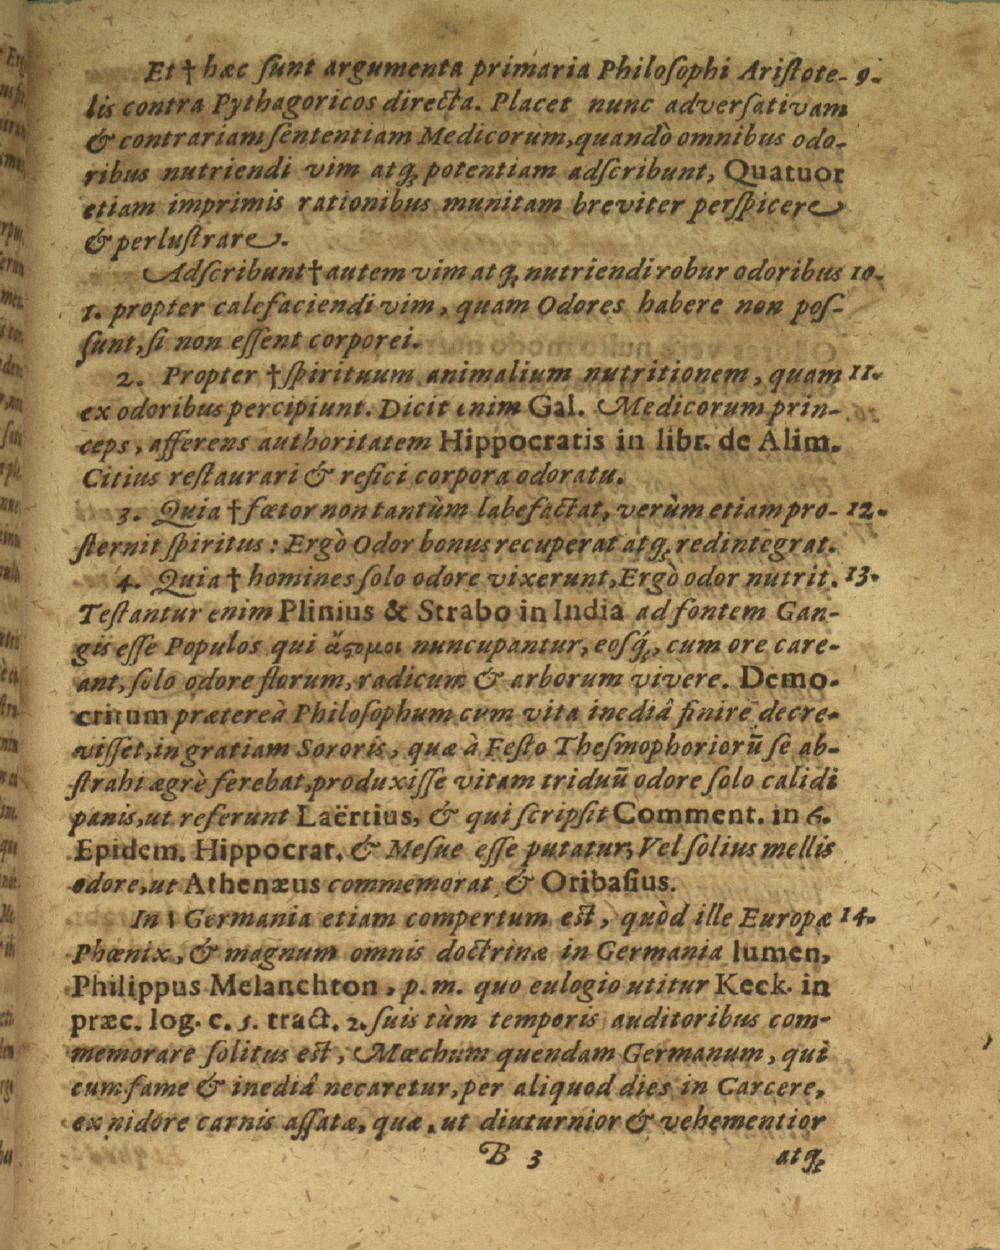 Et † hæc ſunt argumenta primaria Philoſophi Ariſtote- 9.
lis contra Pythagoricos directa. Placet nunc adverſativam
& contrariam ſententiam Medicorum, quandò omnibus odo-
ribus nutriendi vim atq; potentiam adſcribunt, Quatuor
etiam imprimis rationibus munitam breviter perſpicere
& perluſtrare.
Adſcribunt † autem vim atq; nutriendi robur odoribus 10.
1. propter calefaciendi vim, quam Odores habere non poſ-
ſunt, ſi non eſſent corporei.
2. Propter † ſpirituum animalium nutritionem, quam 11.
ex odoribus percipiunt. Dicit enim Gal. Medicorum prin-
ceps, afferens authoritatem Hippocratis in libr. de Alim.
Citius reſtaurari & refici corpora odoratu.
3. Quia † fœtor non tantùm labefactat, verùm etiam pro- 12.
ſternit ſpiritus: Ergò Odor bonus recuperat atq; redintegrat.
4. Quia † homines ſolo odore vixerunt, Ergò odor nutrit. 13.
Teſtantur enim Plinius & Strabo in India ad fontem Gan-
gis eſſe Populos qui ἄϛομοι nuncupantur, eosq́;, cum ore care-
ant, ſolo odore florum, radicum & arborum vivere. Demo-
critum prætereà Philoſophum cum vita inediâ finire decre-
viſſet, in gratiam Sororis, quæ à Feſto Theſmophoriorũ ſe ab-
ſtrahi ægrè ferebat, produxiſſe vitam triduũ odore ſolo calidi
panis, ut referunt Laërtius, & qui ſcripſit Comment. in 6.
Epidem. Hippocrat. & Meſue eſſe putatur, Vel ſolius mellis
odore, ut Athenæus commemorat & Oribaſius.
In † Germania etiam compertum eſt, quòd ille Europæ 14.
Phœnix, & magnum omnis doctrinæ in Germania lumen,
Philippus Melanchton, p. m. quo eulogio utitur Keck. in
præc. log. c. 5. tract. 2. ſuis tùm temporis auditoribus com-
memorare ſolitus eſt, Mœchum quendam Germanum, qui
cum fame & inediâ necaretur, per aliquod dies in Carcere,
ex nidore carnis aſſatæ, quæ, ut diuturnior & vehementior
B 3 atq;